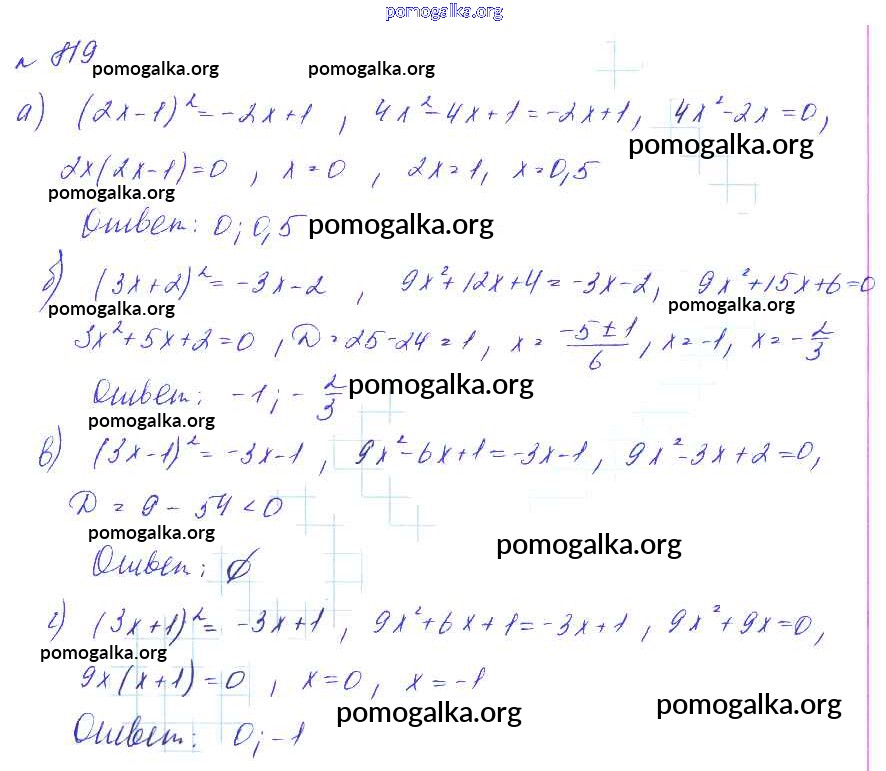 pomogalka.org
№ 819
pomogalka.org pomogalka.org
а) (2x-1)²=-2x+1, 4x²-4x+1=-2x+1, 4x²-2x=0,
pomogalka.org
2x(2x-1)=0, x=0, 2x=1, x=0,5
pomogalka.org
Ответ: 0; 0,5 pomogalka.org
б) (3x+2)²=-3x-2, 9x²+12x+4=-3x-2, 9x²+15x+6=0
pomogalka.org pomogalka.org
3x²+5x+2=0, D=25-24=1, x=\frac{-5±1}{6}, x=-1, x=-\frac{2}{3}
Ответ: -1; -\frac{2}{3} pomogalka.org
pomogalka.org
в) (3x-1)²=-3x-1, 9x²-6x+1=-3x-1, 9x²-3x+2=0,
D=9-54<0
pomogalka.org pomogalka.org
Ответ: ∅
г) (3x+1)²=-3x+1, 9x²+6x+1=-3x+1, 9x²+9x=0,
pomogalka.org
9x(x+1)=0, x=0, x=-1
pomogalka.org pomogalka.org
Ответ: 0; -1